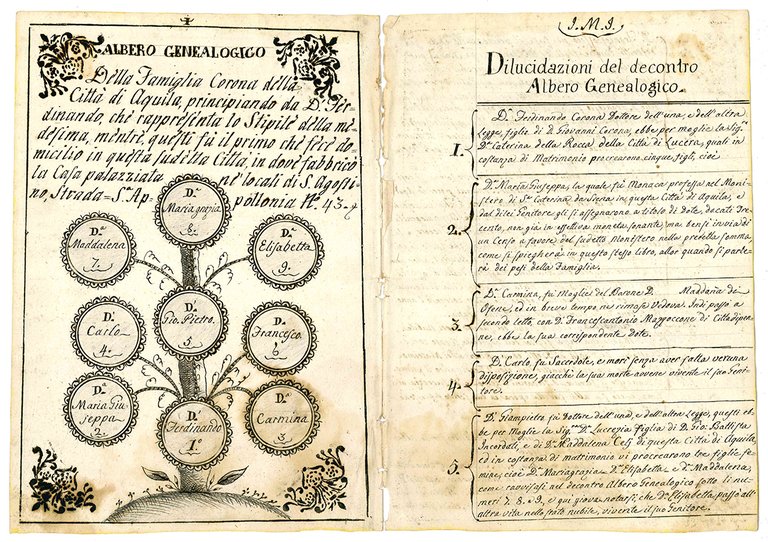 ALBERO GENEALOGICO
Della Famiglia Corona della
Città di Aquila, principiando da D.n Fer-
dinando, che rappresenta lo Stipite della me-
desima, mentre questi fù il primo che fece do-
micilio in questa sud.tta Città, in dove fabbricò
la Casa palazziata ne' locali di S. Agosti-
no, Strada=S.a Ap- pollonia N.o 43.
D.a
Maria grazia
8.
D.a
Maddalena
7.
D.a
Elisabetta
9.
D.n
Carlo
4.
D.n
Gio: Pietro
5
D.n
Francesco
6
D.a
Maria Giu-
seppa
2.
D.n
Ferdinando
1.o
D.a
Carmina
3.
I. M. I.
Dilucidazioni del decontro
Albero Genealogico.
1. D.n Ferdinando Corona Dottore dell'una, e dell'altra
Legge, figlio di D. Giovanni Corona, ebbe per moglie la Sig.ra
D.a Caterina della Rocca della Città di Lucera, quali in
costanza di Matrimonio procrearono cinque figli, cioè
2. D.a Maria Giuseppa, la quale fù Monaca professa nel Moni-
stero di S.a Caterina da Siena in questa Città di Aquila, e
dal di lei Genitore gli si assegnarono a titolo di dote, docati Tre-
cento, non già in effettiva moneta sonante, ma bensì in via di
un Censo a favore del sudetto Monistero nella predetta somma,
come si spiegherà in questo stesso libro, allor quando si parle-
rà dei pesi della Famiglia.
3. D.a Carmina, fù Moglie del Barone D. Maddana di
Ofene, ed in breve tempo ne rimase Vedova. Indi passò a
secondo letto, con D. Francescantonio Mazzoccone di Cittadipen-
ne, ebbe la sua corrispondente Dote.
4. D. Carlo fù Sacerdote, e morì senza aver fatta veruna
disposizione, giacchè la sua morte avvenne vivente il suo Geni-
tore.
5. D. Giampietro fù Dottore dell'una, e dell'altra Legge, questi eb-
be per Moglie la Sig.ra D.a Lucrezia figlia di D. Gio: Battista
Incordati, e di D.a Maddalena Celj di questa Città di Aquila,
ed in costanza di matrimonio vi procrearono tre figlie fe-
mine, cioè D.a Mariagrazia D.a Elisabetta e D.a Maddalena,
come ravvisasi nel decontro Albero Genealogico sotto li nu-
meri 7. 8. e 9. e qui giova notarsi, che D.a Elisabetta passò all'
altra vita nello stato nubile, vivente il suo Genitore.